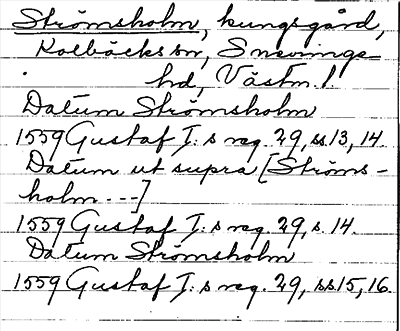 Strömsholm, kungsgård,
Kolbäcks sn, Snevringe
hd, Västm. l.
Datum Strömsholm
1559 Gustaf I:s reg. 29, ss. 13, 14.
Datum ut supra [Ströms-
holm ---]
1559 Gustaf I:s reg. 29, s. 14.
Datum Strömsholm
1559 Gustaf I:s reg. 29, ss 15, 16.